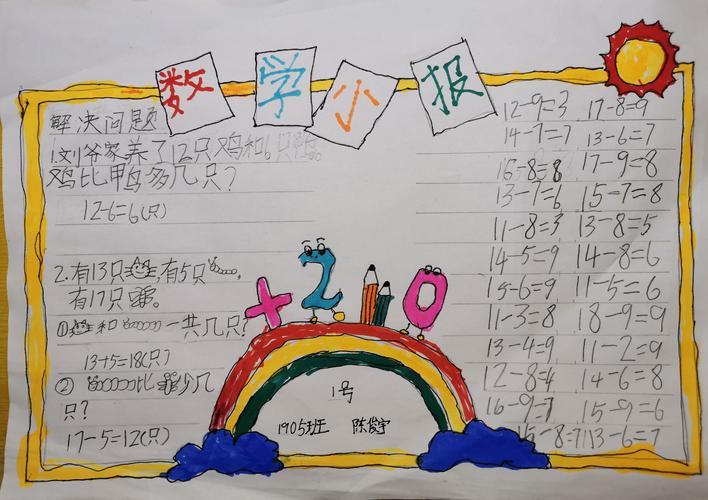 数学小报
解决问题
1.刘爷家养了12只鸡和6只鸭。
鸡比鸭多几只?
12-6=6(只)
2.有13只,有5只,
有17只。
①和一共几只?
13+5=18(只)
②比少几
只?
17-5=12(只)
12-9=3 17-8=9
14-7=7 13-6=7
16-8=8 17-9=8
13-7=6 15-7=8
11-8=3 13-8=5
14-5=9 14-8=6
15-6=9 11-5=6
11-3=8 18-9=9
13-4=9 11-2=9
12-8=4 14-6=8
16-9=7 15-9=6
15-8=7 13-6=7
+210
1号
1905班 陈俊宇